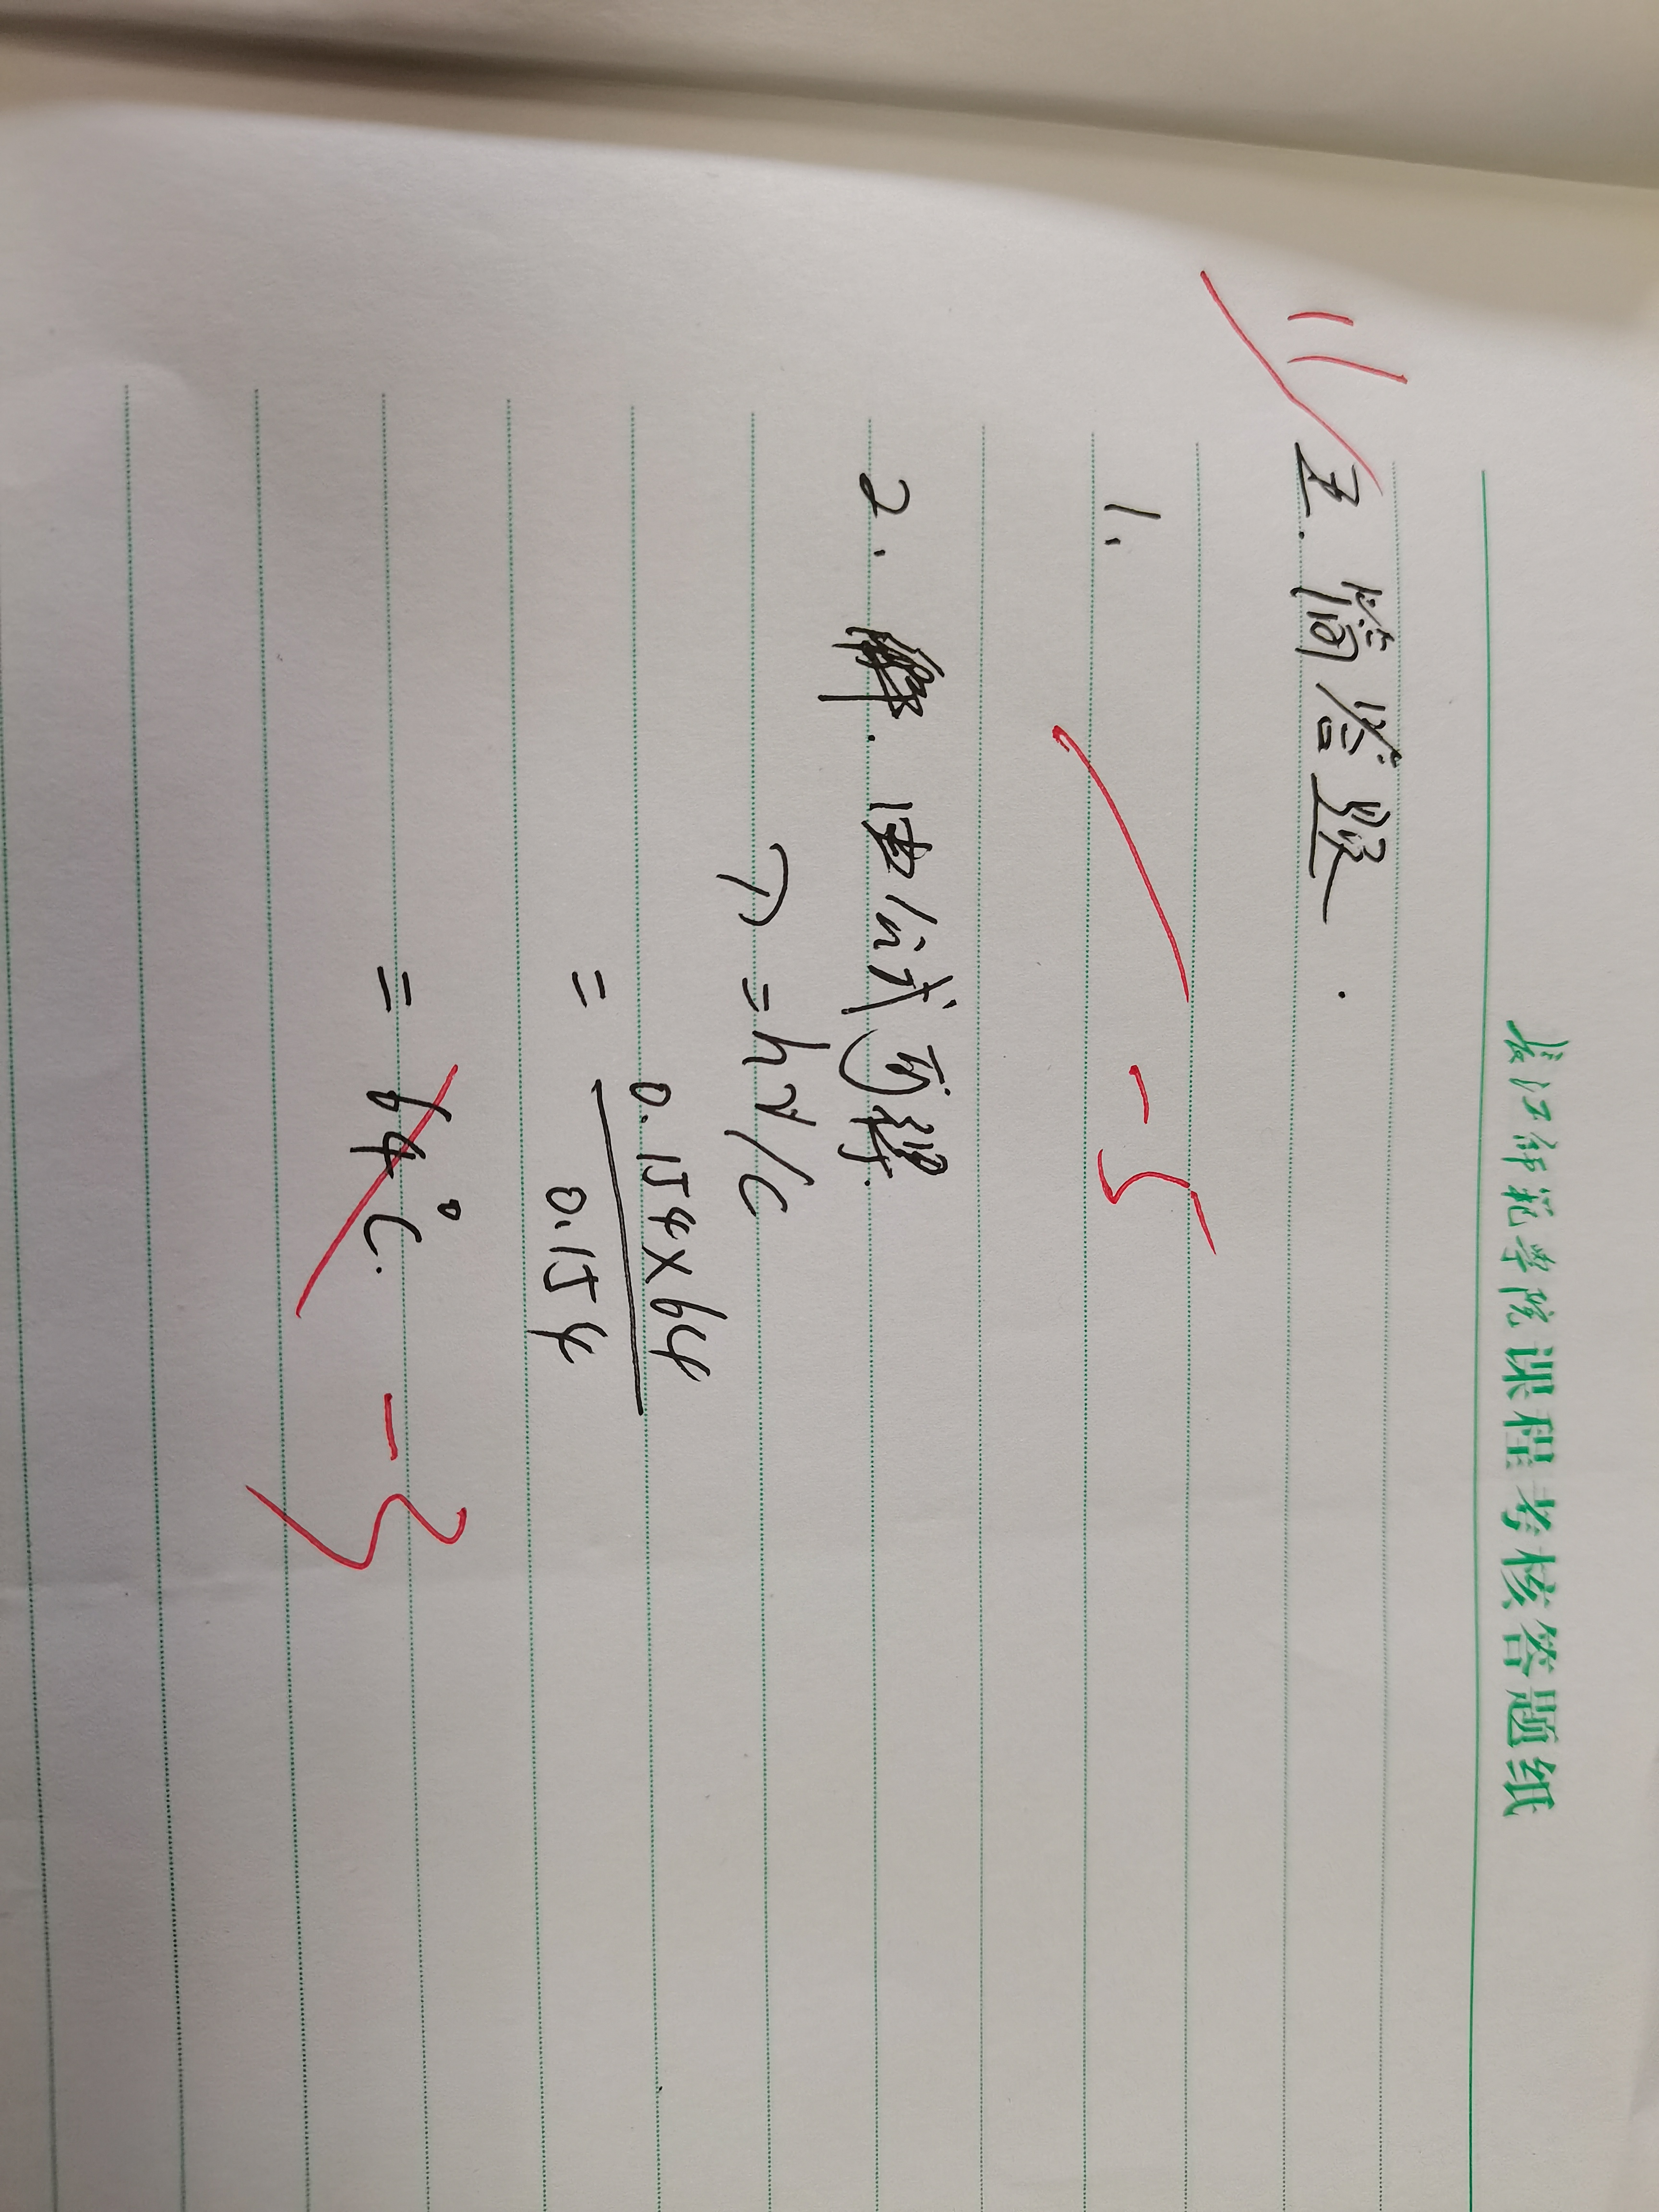 长江师范学院课程考核答题纸
11
五. 简答题.
1、
-5
2. 解. 由公式可得.
= hγ/c
= 0.154×64
0.154
= 64℃.
-3